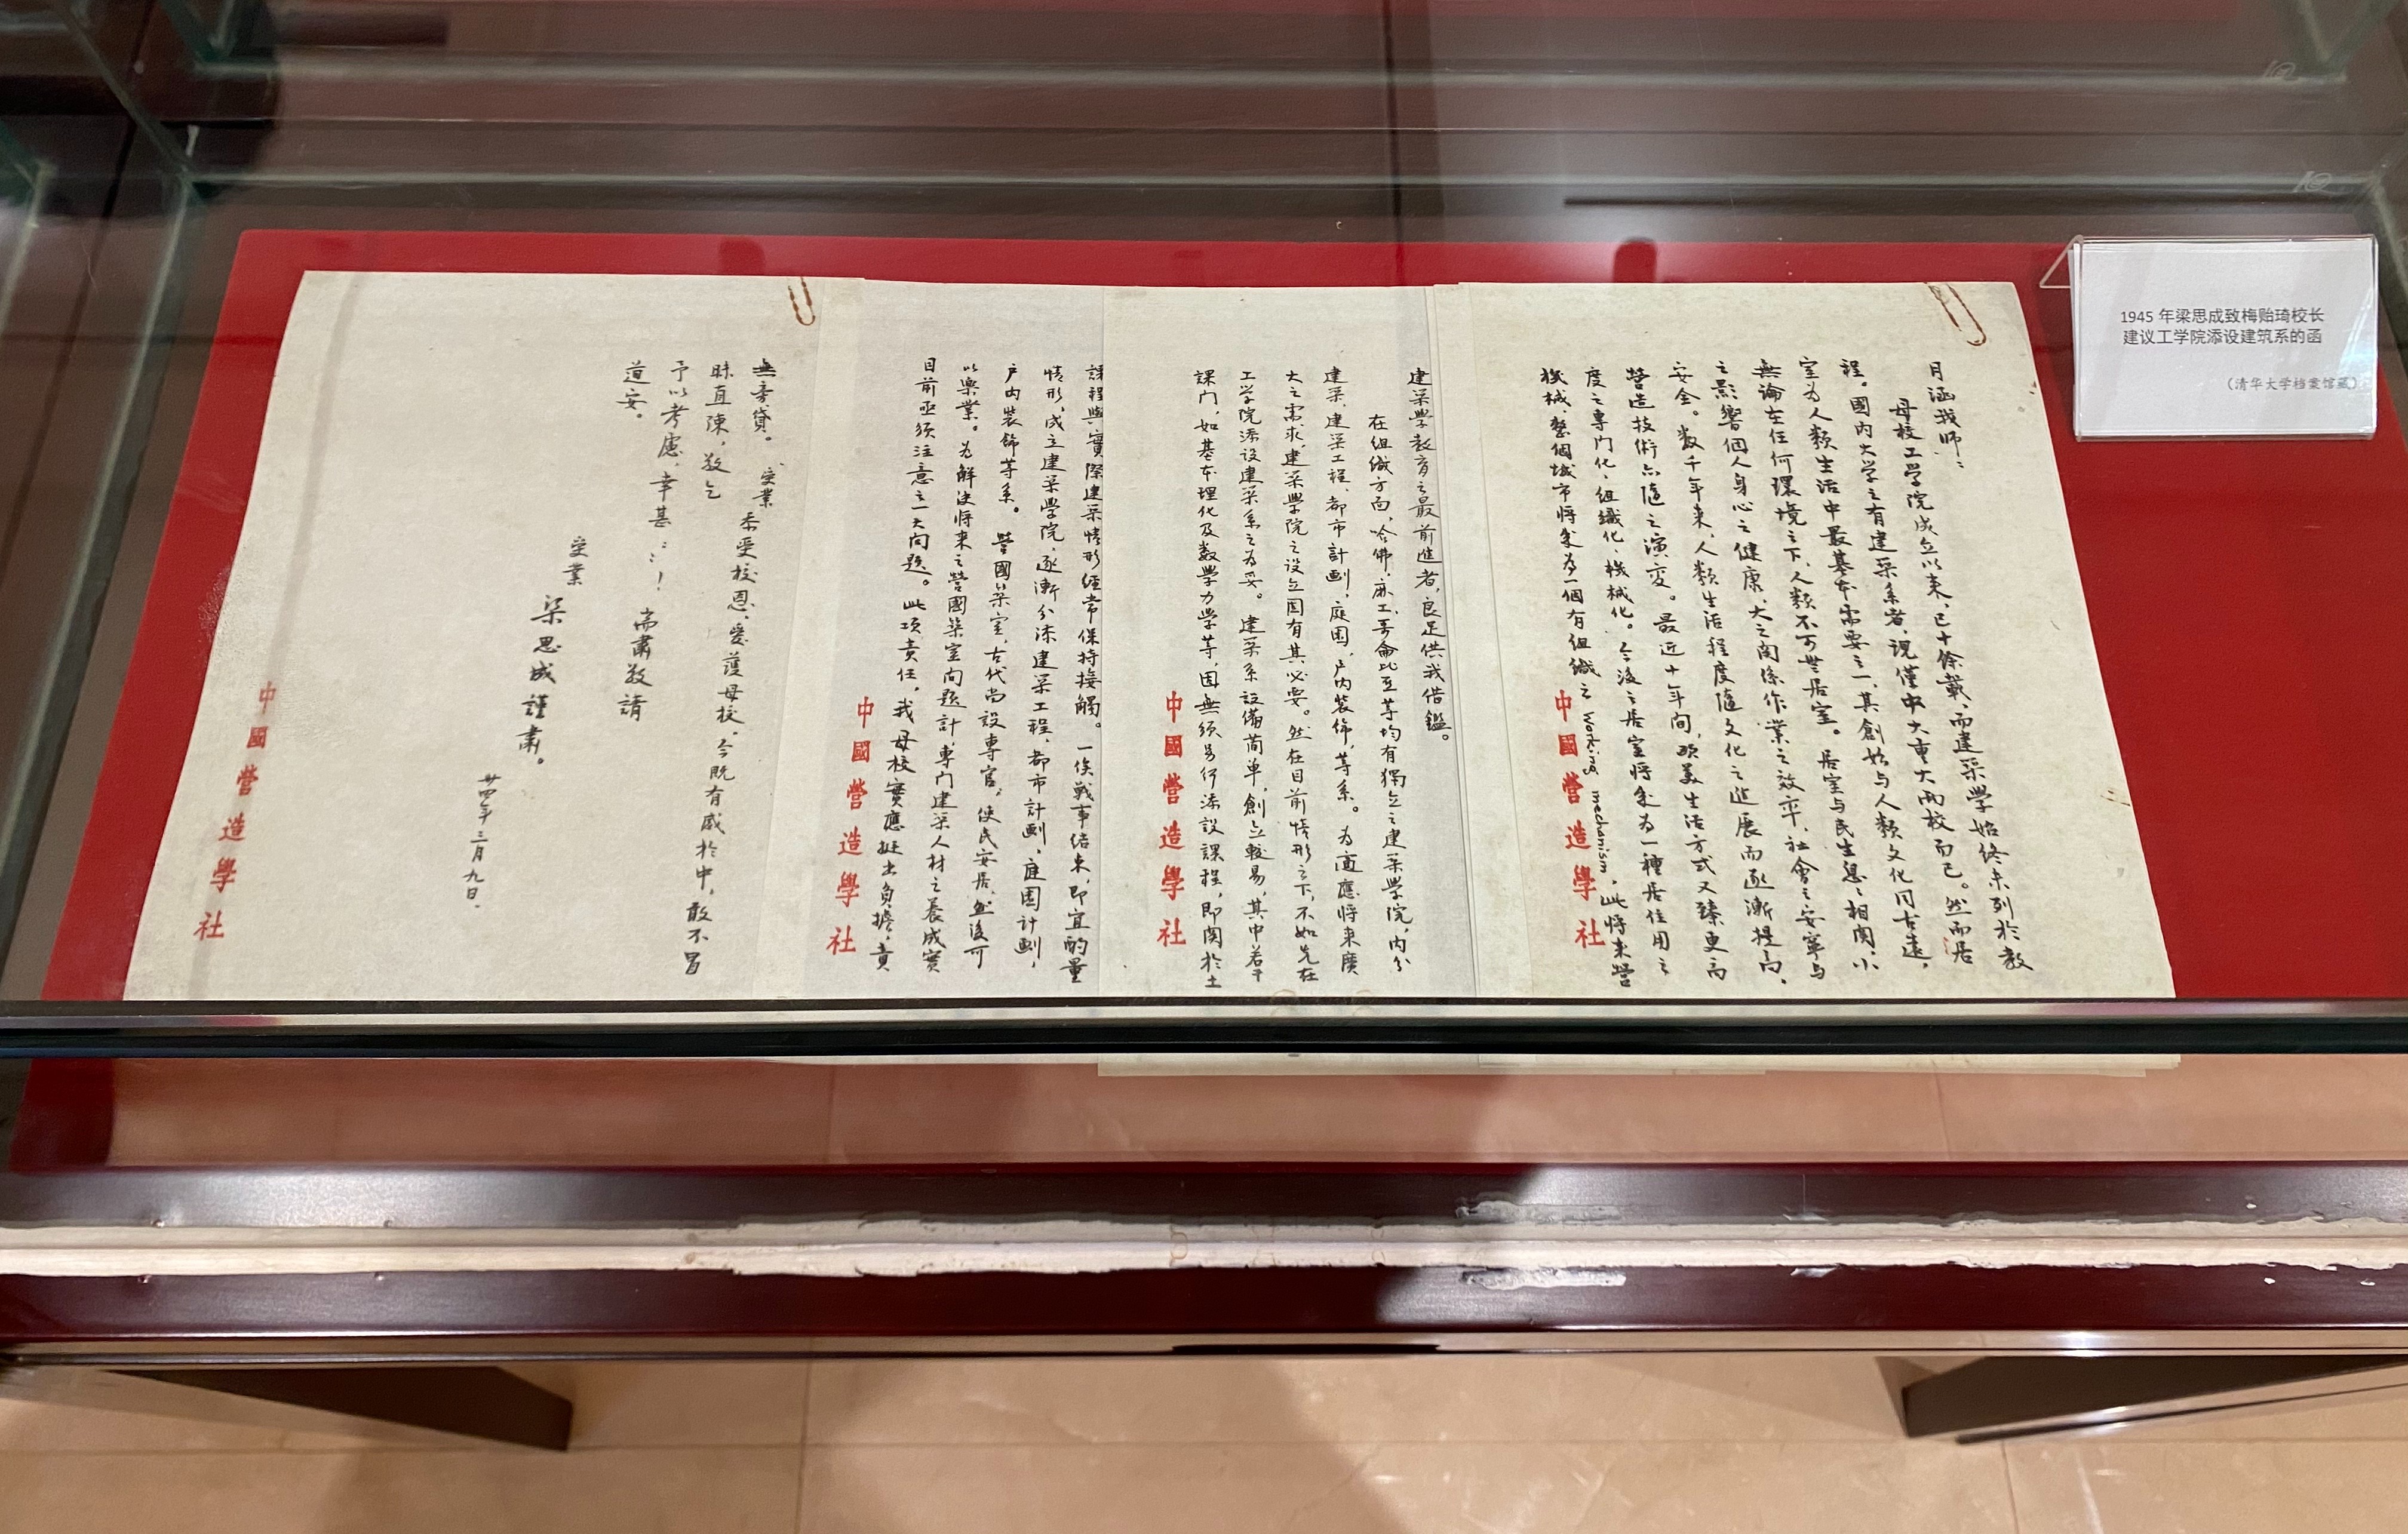 1945 年梁思成致梅贻琦校长
建议工学院添设建筑系的函
（清华大学档案馆藏）
月涵我师：
母校工学院成立以来，已十余載，而建築學始終未列於教
程。國内大学之有建築系者，現僅中大重大两校而已。然而居
室为人類生活中最基本需要之一，其創始与人類文化同古遠，
無論在任何環境之下，人類不可無居室。居室与民生息息相関，小
之影響個人身心之健康，大之関係作業之效率，社會之安寧与
安全。数千年来，人類生活程度隨文化之進展而逐漸提高，
營造技術亦隨之演变。最近十年间，欧美生活方式又臻更高
度之專门化，组織化，機械化。今後之居室将成为一種居住用之
機械，整個城市将成为一個有组織之 working mechanism，此将来營
中國營造學社
建築學教育之最前進者，良足供我借鑑。
在组織方面，哈佛，麻工，哥侖比亚等均有獨立之建築学院，内分
建築，建築工程，都市計劃，庭園，户内装飾，等系。为適應将来廣
大之需求，建築學院之设立固有其必要。然在目前情形之下，不如先在
工学院添设建築系之为妥。建築系設備简单，創立較易，其中若干
課门，如基本理化及数學力學等，固無須另行添設課程，即関於土
中國營造學社
課程與實際建築情形經常保持接觸。一俟戰事结束，即宜酌量
情形，成立建築學院，逐漸分添建築工程，都市計劃，庭園計劃，
户内装飾等系。營國築室，古代尚設專官，使民安居，然後可
以樂業。为解决将来之營國築室问題計，專门建築人材之養成實
目前亟须注意之一大问題。此項責任，我母校實應挺出負擔，責
中國營造學社
無旁貸。受業忝受校恩，愛護母校，今既有感於中，敢不冒
昧直陳，敬乞
予以考慮，幸甚幸甚！耑肅敬請
道安。
受業
梁思成謹肅。
卅四年三月九日.
中國營造學社